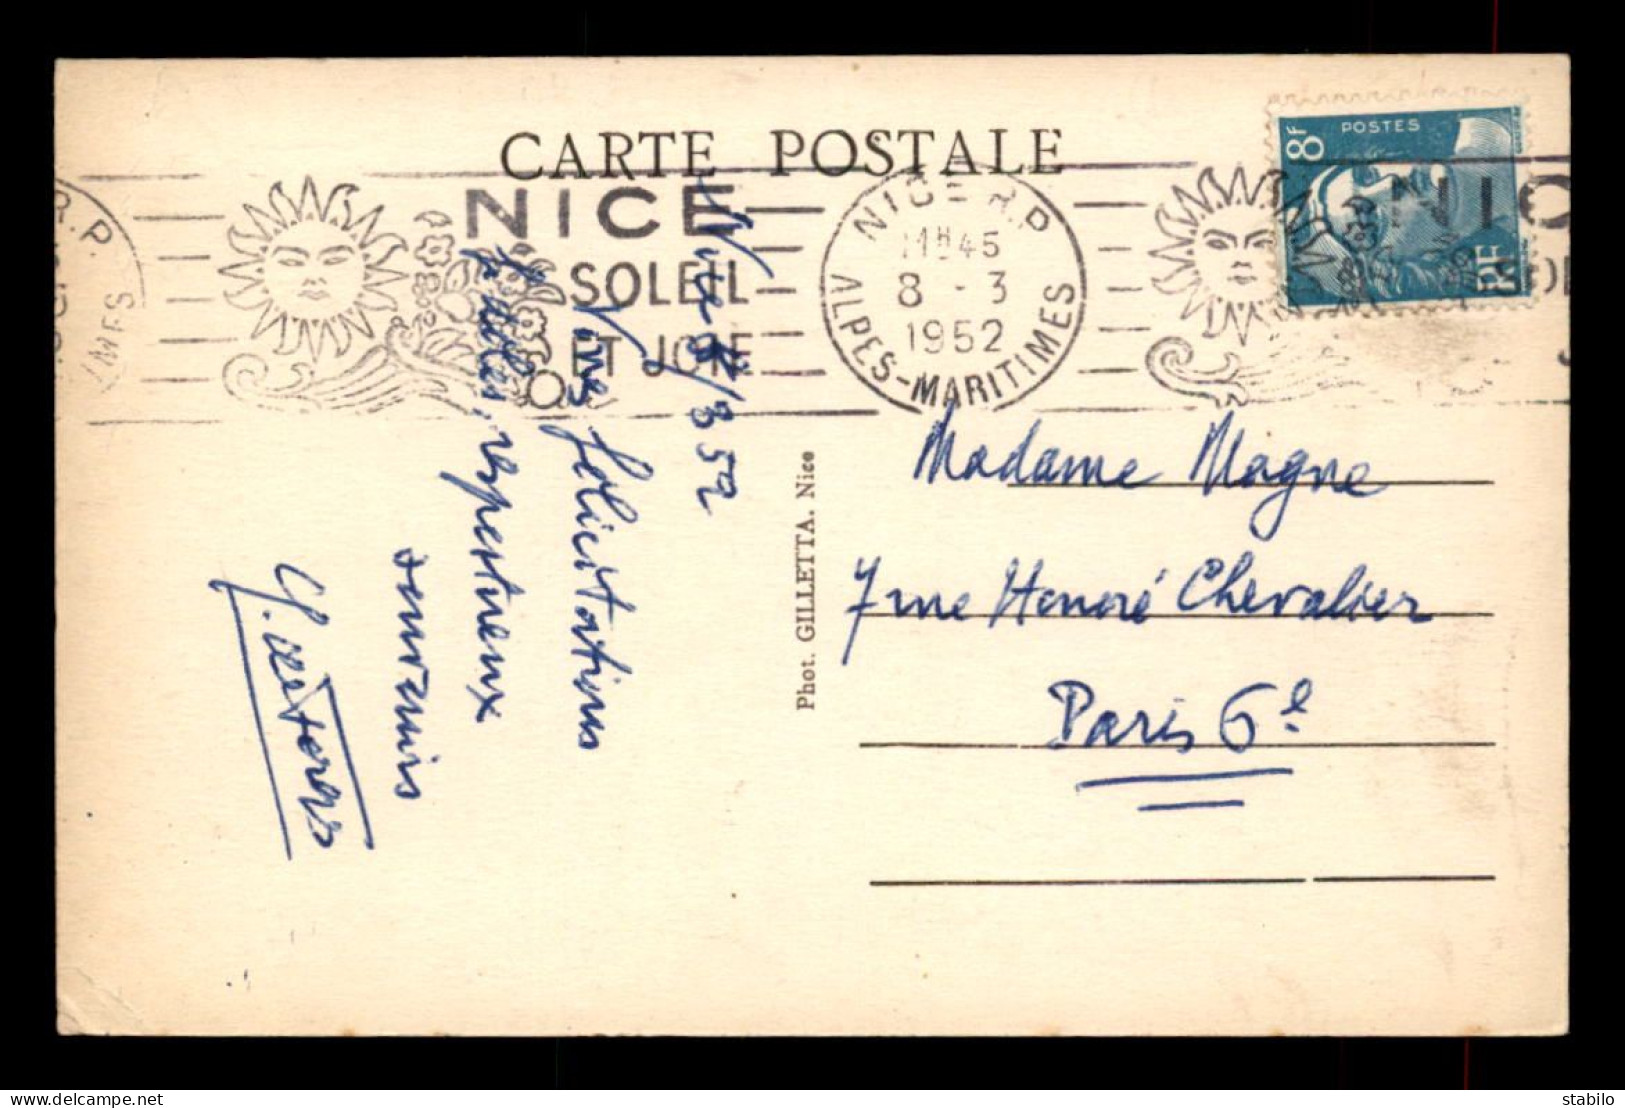 CARTE POSTALE
NICE
SOLEIL
ET JOIE
NICE R.P
11H45
8 - 3
1952
ALPES-MARITIMES
8F
POSTES
RF
NIC
SOL
R.P
MES
Nice 8/3 52
Vives félicitations
respectueux
souvenirs
Phot. GILLETTA. Nice
Madame Magne
7 rue Honoré Chevalier
Paris 6e
stabilo